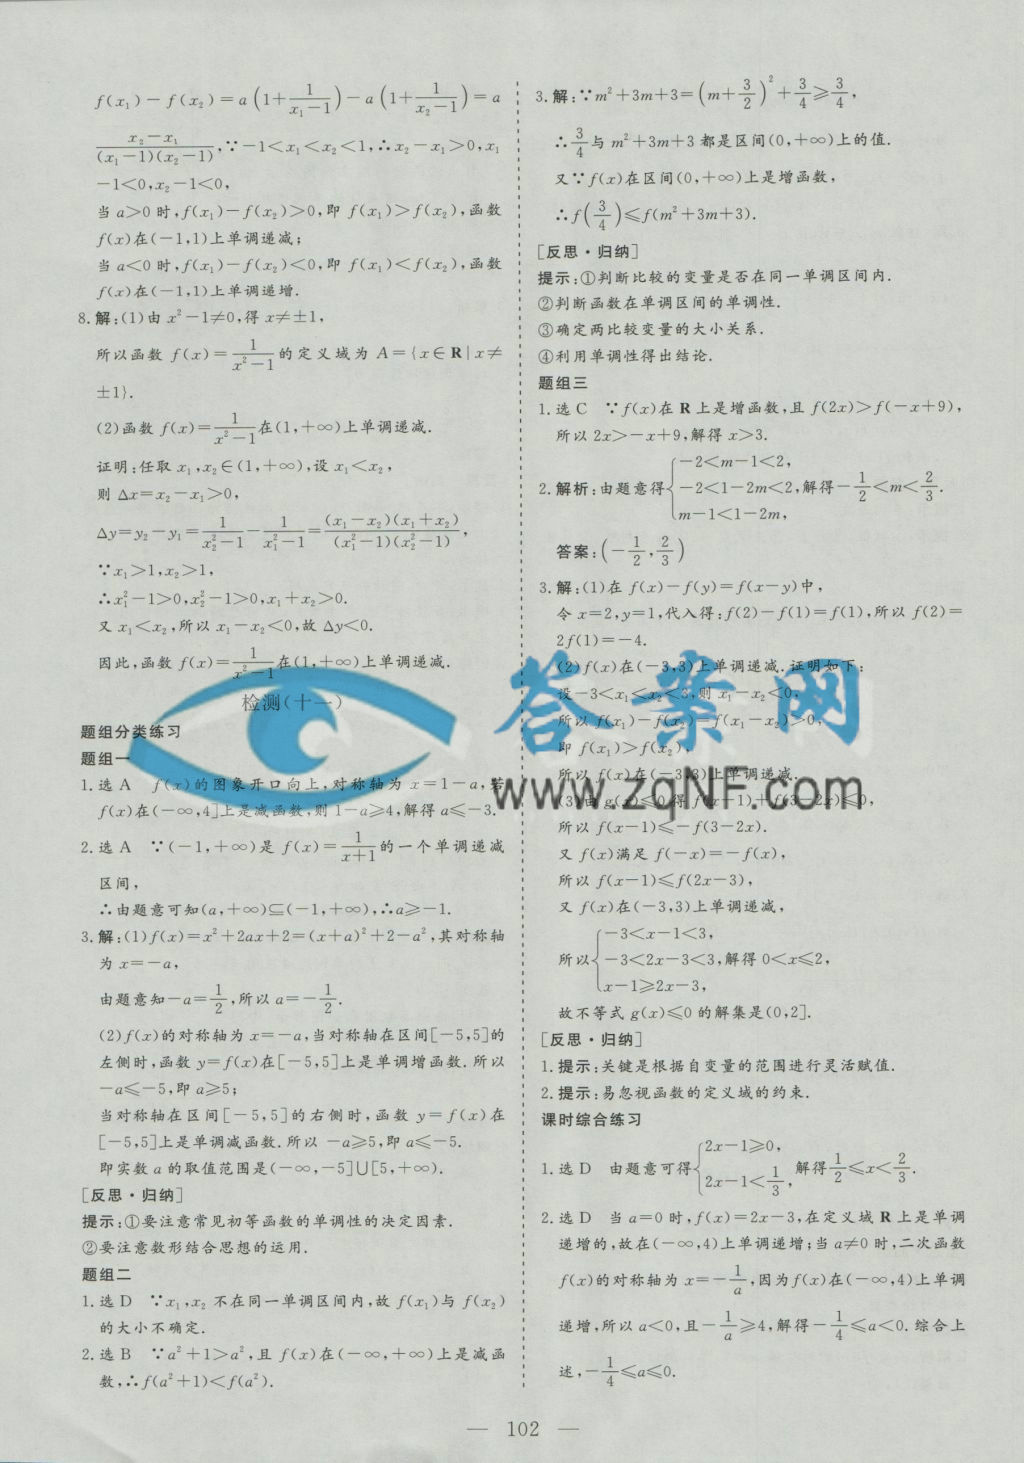 f(x₁)－f(x₂)＝a(1＋1/(x₁－1))－a(1＋1/(x₂－1))＝a
(x₂－x₁)/((x₁－1)(x₂－1)),∵－1＜x₁＜x₂＜1,∴x₂－x₁＞0,x₁
－1＜0,x₂－1＜0,
当 a＞0 时,f(x₁)－f(x₂)＞0,即 f(x₁)＞f(x₂),函数
f(x)在(－1,1)上单调递减;
当 a＜0 时,f(x₁)－f(x₂)＜0,即 f(x₁)＜f(x₂),函数
f(x)在(－1,1)上单调递增.
8.解:(1)由 x²－1≠0,得 x≠±1,
所以函数 f(x)＝1/(x²－1)的定义域为 A＝{x∈R|x≠
±1}.
(2)函数 f(x)＝1/(x²－1)在(1,＋∞)上单调递减.
证明:任取 x₁,x₂∈(1,＋∞),设 x₁＜x₂,
则 Δx＝x₂－x₁＞0,
Δy＝y₂－y₁＝1/(x₂²－1)－1/(x₁²－1)＝(x₁－x₂)(x₁＋x₂)/((x₁²－1)(x₂²－1)),
∵x₁＞1,x₂＞1,
∴x₁²－1＞0,x₂²－1＞0,x₁＋x₂＞0.
又 x₁＜x₂,所以 x₁－x₂＜0,故 Δy＜0.
因此,函数 f(x)＝1/(x²－1)在(1,＋∞)上单调递减.
检测(十一)
题组分类练习
题组一
1.选 A　f(x)的图象开口向上,对称轴为 x＝1－a,若
f(x)在(－∞,4]上是减函数,则 1－a≥4,解得 a≤－3.
2.选 A　∵(－1,＋∞)是 f(x)＝1/(x＋1)的一个单调递减
区间,
∴由题意可知(a,＋∞)⊆(－1,＋∞),∴a≥－1.
3.解:(1)f(x)＝x²＋2ax＋2＝(x＋a)²＋2－a²,其对称轴
为 x＝－a,
由题意知－a＝1/2,所以 a＝－1/2.
(2)f(x)的对称轴为 x＝－a,当对称轴在区间[－5,5]的
左侧时,函数 y＝f(x)在[－5,5]上是单调增函数.所以
－a≤－5,即 a≥5;
当对称轴在区间[－5,5]的右侧时,函数 y＝f(x)在
[－5,5]上是单调减函数.所以－a≥5,即 a≤－5.
即实数 a 的取值范围是(－∞,－5]∪[5,＋∞).
[反思·归纳]
提示:①要注意常见初等函数的单调性的决定因素.
②要注意数形结合思想的运用.
题组二
1.选 D　∵x₁,x₂ 不在同一单调区间内,故 f(x₁)与 f(x₂)
的大小不确定.
2.选 B　∵a²＋1＞a²,且 f(x)在(－∞,＋∞)上是减函
数,∴f(a²＋1)＜f(a²).
3.解:∵m²＋3m＋3＝(m＋3/2)²＋3/4≥3/4,
∴3/4与 m²＋3m＋3 都是区间(0,＋∞)上的值.
又∵f(x)在区间(0,＋∞)上是增函数,
∴f(3/4)≤f(m²＋3m＋3).
[反思·归纳]
提示:①判断比较的变量是否在同一单调区间内.
②判断函数在单调区间的单调性.
③确定两比较变量的大小关系.
④利用单调性得出结论.
题组三
1.选 C　∵f(x)在 R 上是增函数,且 f(2x)＞f(－x＋9),
所以 2x＞－x＋9,解得 x＞3.
－2＜m－1＜2,
2.解析:由题意得{－2＜1－2m＜2,解得－1/2＜m＜2/3.
m－1＜1－2m,
答案:(－1/2,2/3)
3.解:(1)在 f(x)－f(y)＝f(x－y)中,
令 x＝2,y＝1,代入得:f(2)－f(1)＝f(1),所以 f(2)＝
2f(1)＝－4.
(2)f(x)在(－3,3)上单调递减.证明如下:
设－3＜x₁＜x₂＜3,则 x₁－x₂＜0,
所以 f(x₁)－f(x₂)＝f(x₁－x₂)＞0,
即 f(x₁)＞f(x₂),
所以 f(x)在(－3,3)上单调递减.
(3)由 g(x)≤0 得 f(x－1)＋f(3－2x)≤0,
所以 f(x－1)≤－f(3－2x).
又 f(x)满足 f(－x)＝－f(x),
所以 f(x－1)≤f(2x－3),
又 f(x)在(－3,3)上单调递减,
－3＜x－1＜3,
所以{－3＜2x－3＜3,解得 0＜x≤2,
x－1≥2x－3,
故不等式 g(x)≤0 的解集是(0,2].
[反思·归纳]
1.提示:关键是根据自变量的范围进行灵活赋值.
2.提示:易忽视函数的定义域的约束.
课时综合练习
1.选 D　由题意可得{2x－1≥0,
2x－1＜1/3,解得1/2≤x＜2/3.
2.选 D　当 a＝0 时,f(x)＝2x－3,在定义域 R 上是单调
递增的,故在(－∞,4)上单调递增;当 a≠0 时,二次函数
f(x)的对称轴为 x＝－1/a,因为 f(x)在(－∞,4)上单调
递增,所以 a＜0,且－1/a≥4,解得－1/4≤a＜0.综合上
述,－1/4≤a≤0.
答案网
www.zqNF.com
— 102 —